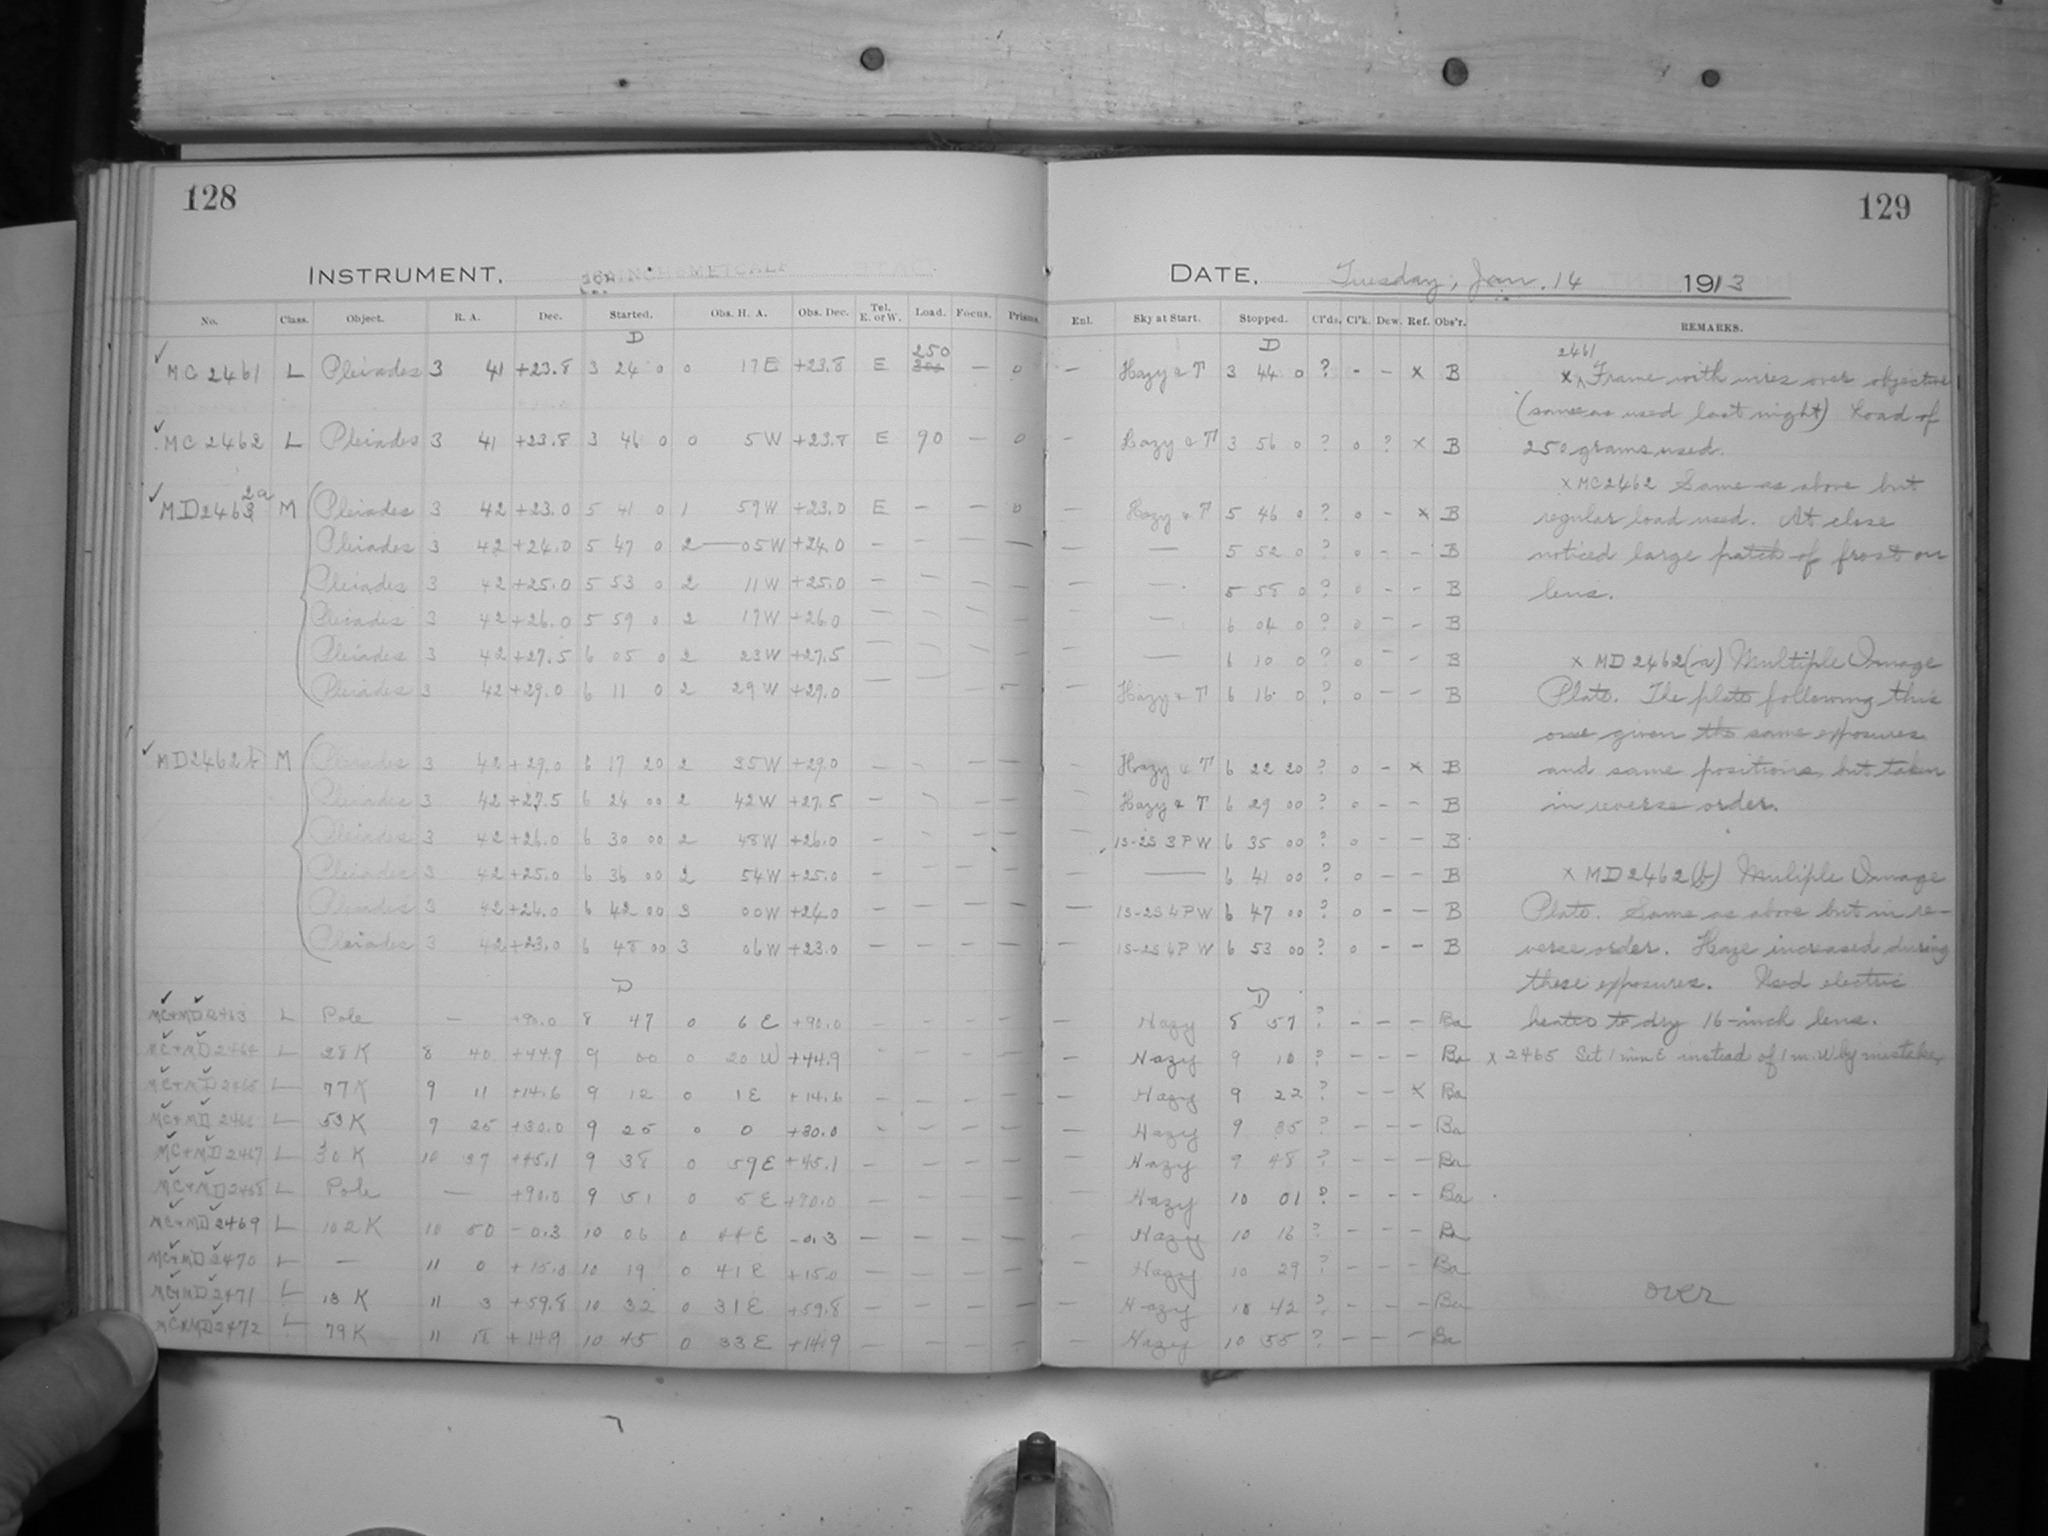 128
129
INSTRUMENT, 16 INCH METCALF
DATE, Tuesday, Jan. 14 1913
No. Class. Object. R. A. Dec. Started. Obs. H. A. Obs. Dec. Tel. E. or W. Load. Focus. Prisms.
Enl. Sky at Start. Stopped. Cl'ds. Cl'k. Dew. Ref. Obs'r. REMARKS.
D
250
✓ MC 2461 L Pleiades 3 41 +23.8 3 24 0 0 17 E +23.8 E 300 — 0
✓ MC 2462 L Pleiades 3 41 +23.8 3 46 0 0 5 W +23.8 E 90 — 0
✓ MD 2463 2a M Pleiades 3 42 +23.0 5 41 0 1 59 W +23.0 E — — 0
Pleiades 3 42 +24.0 5 47 0 2 — 05 W +24.0 — — — —
Pleiades 3 42 +25.0 5 53 0 2 11 W +25.0 — — — —
Pleiades 3 42 +26.0 5 59 0 2 17 W +26.0 — — — —
Pleiades 3 42 +27.5 6 05 0 2 23 W +27.5 — — — —
Pleiades 3 42 +29.0 6 11 0 2 29 W +29.0 — — — —
✓ MD 2462 b M Pleiades 3 42 +29.0 6 17 20 2 35 W +29.0 — — — —
Pleiades 3 42 +27.5 6 24 00 2 42 W +27.5 — — — —
Pleiades 3 42 +26.0 6 30 00 2 48 W +26.0 — — — —
Pleiades 3 42 +25.0 6 36 00 2 54 W +25.0 — — — —
Pleiades 3 42 +24.0 6 42 00 3 00 W +24.0 — — — —
Pleiades 3 42 +23.0 6 48 00 3 06 W +23.0 — — — —
D
MC+MD 2463 L Pole — +90.0 8 47 0 6 E +90.0 — — — —
MC+MD 2464 L 28 K 8 40 +44.9 9 00 0 20 W +44.9 — — — —
MC+MD 2465 L 77 K 9 11 +14.6 9 12 0 1 E +14.6 — — — —
MC+MD 2466 L 53 K 9 25 +30.0 9 25 0 0 +30.0 — — — —
MC+MD 2467 L 30 K 10 37 +45.1 9 38 0 59 E +45.1 — — — —
MC+MD 2468 L Pole — +90.0 9 51 0 5 E +90.0 — — — —
MC+MD 2469 L 102 K 10 50 -0.3 10 06 0 44 E -0.3 — — — —
MC+MD 2470 L — 11 0 +15.0 10 19 0 41 E +15.0 — — — —
MC+MD 2471 L 13 K 11 3 +59.8 10 32 0 31 E +59.8 — — — —
MC+MD 2472 L 79 K 11 18 +14.9 10 45 0 33 E +14.9 — — — —
D
— Hazy & T 3 44 0 ? - - x B
— Hazy & T 3 56 0 ? 0 ? x B
— Hazy & T 5 46 0 ? 0 - x B
— — 5 52 0 ? 0 - - B
— — 5 58 0 ? 0 - - B
— 6 04 0 ? 0 - - B
— — 6 10 0 ? 0 - - B
— Hazy & T 6 16 0 ? 0 - - B
— Hazy & T 6 22 20 ? 0 - x B
— Hazy & T 6 29 00 ? 0 - - B
— 1S-2S 3 P W 6 35 00 ? 0 - - B
— — 6 41 00 ? 0 - - B
— 1S-2S 4 P W 6 47 00 ? 0 - - B
— 1S-2S 6 P W 6 53 00 ? 0 - - B
D
— Hazy 8 57 ? - - - Ba
— Hazy 9 10 ? - - - Ba
— Hazy 9 22 ? - - x Ba
— Hazy 9 35 ? - - - Ba
— Hazy 9 48 ? - - - Ba
— Hazy 10 01 ? - - - Ba
— Hazy 10 16 ? - - - Ba
— Hazy 10 29 ? - - - Ba
— Hazy 10 42 ? - - - Ba
— Hazy 10 55 ? - - - Ba
2461
x ^ Frame with wires over objective
(same as used last night) Load of
250 grams used.
x MC2462 Same as above but
regular load used. At close
noticed large patch of frost on
lens.
x MD 2462(a) Multiple Image
Plate. The plate following this
one given the same exposures
and same positions, but taken
in reverse order.
x MD2462(b) Muliple Image
Plate. Same as above but in re-
verse order. Haze increased during
these exposures. Used electric
heater to dry 16-inch lens.
x 2465 Set 1 min E instead of 1 m. W by mistake.
over